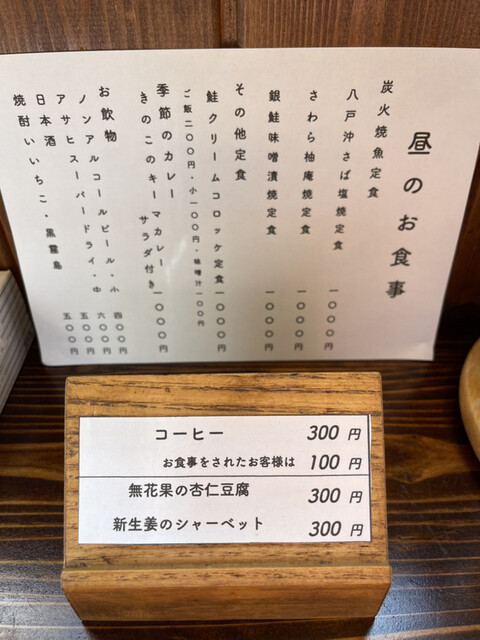 昼のお食事
炭火焼魚定食
八戸沖さば塩焼定食 一〇〇〇円
さわら柚庵焼定食 一〇〇〇円
銀鮭味噌漬焼定食 一〇〇〇円
その他定食
鮭クリームコロッケ定食 一〇〇〇円
ご飯二〇〇円・小一〇〇円・味噌汁一〇〇円
季節のカレー
きのこのキーマカレー サラダ付き 一〇〇〇円
お飲物
ノンアルコールビール・小 四〇〇円
アサヒスーパードライ・中 六〇〇円
日本酒 五〇〇円
焼酎いいちこ・黒霧島 五〇〇円
コーヒー 300円
お食事をされたお客様は 100円
無花果の杏仁豆腐 300円
新生姜のシャーベット 300円